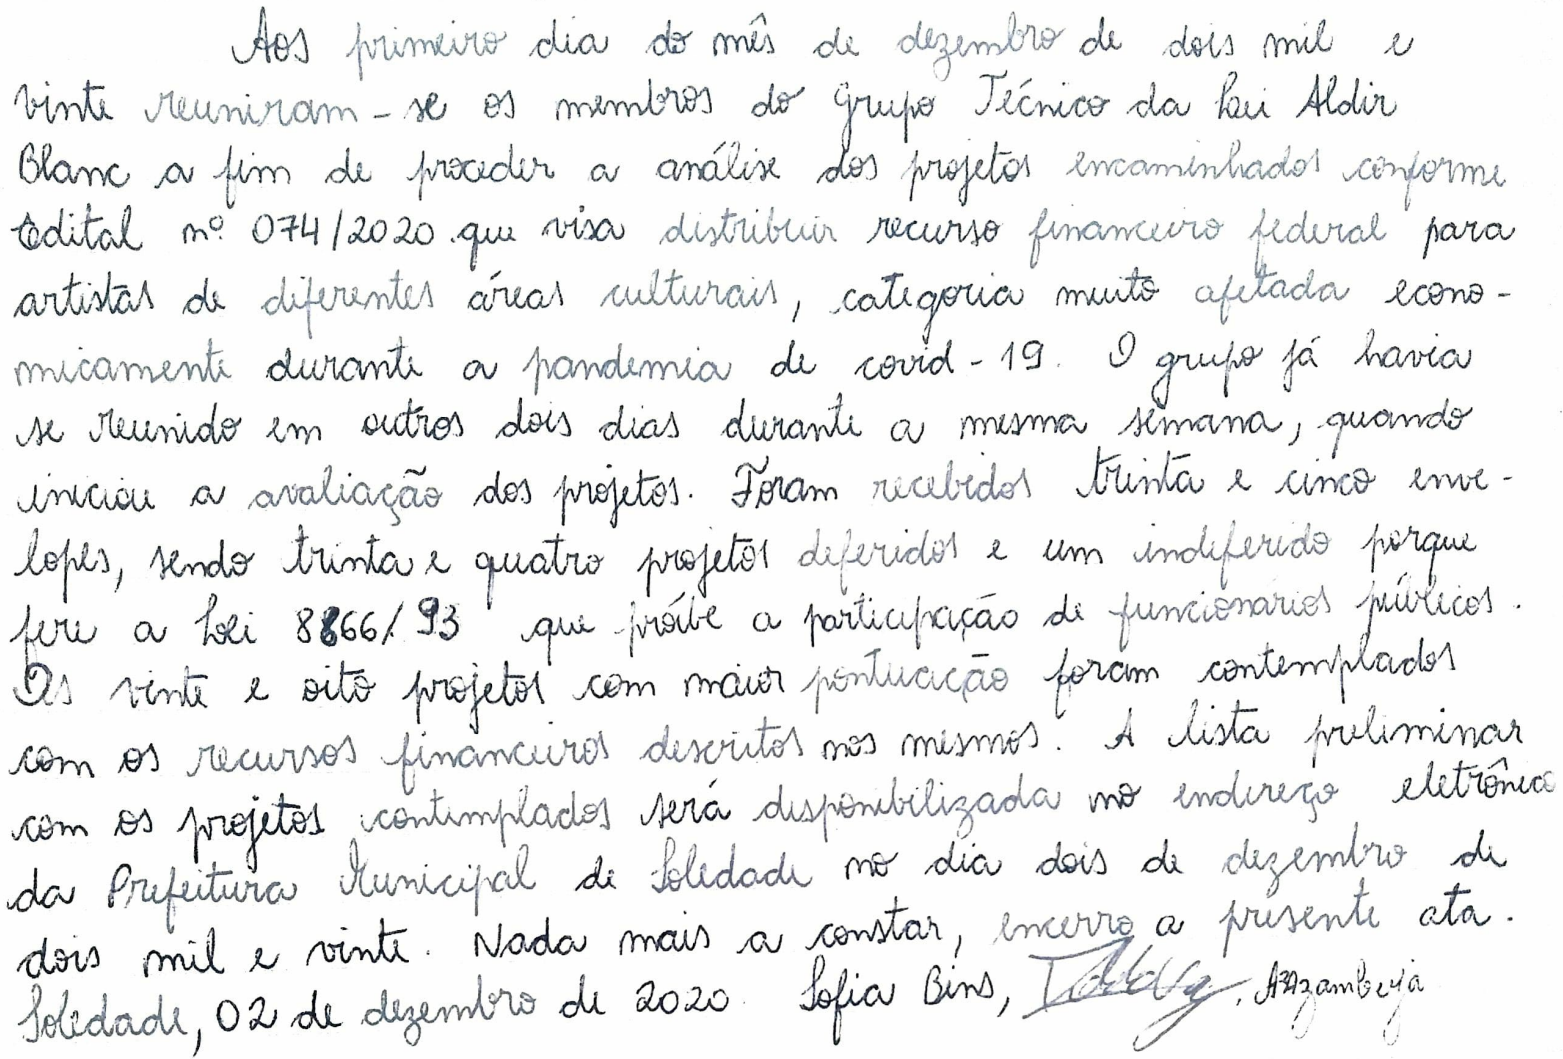 Aos primeiro dia do mês de dezembro de dois mil e
vinte reuniram-se os membros do Grupo Técnico da Lei Aldir
Blanc a fim de proceder a análise dos projetos encaminhados conforme
Edital nº 074/2020 que visa distribuir recurso financeiro federal para
artistas de diferentes áreas culturais, categoria muito afetada econo-
micamente durante a pandemia de covid-19. O grupo já havia
se reunido em outros dois dias durante a mesma semana, quando
iniciou a avaliação dos projetos. Foram recebidos trinta e cinco enve-
lopes, sendo trinta e quatro projetos deferidos e um indeferido porque
fere a Lei 8666/93 que proíbe a participação de funcionarios públicos.
Os vinte e oito projetos com maior pontuação foram contemplados
com os recursos financeiros descritos nos mesmos. A lista preliminar
com os projetos contemplados será disponibilizada no endereço eletrônico
da Prefeitura Municipal de Soledade no dia dois de dezembro de
dois mil e vinte. Nada mais a constar, encerro a presente ata.
Soledade, 02 de dezembro de 2020. Sofia Bins, Azambuja